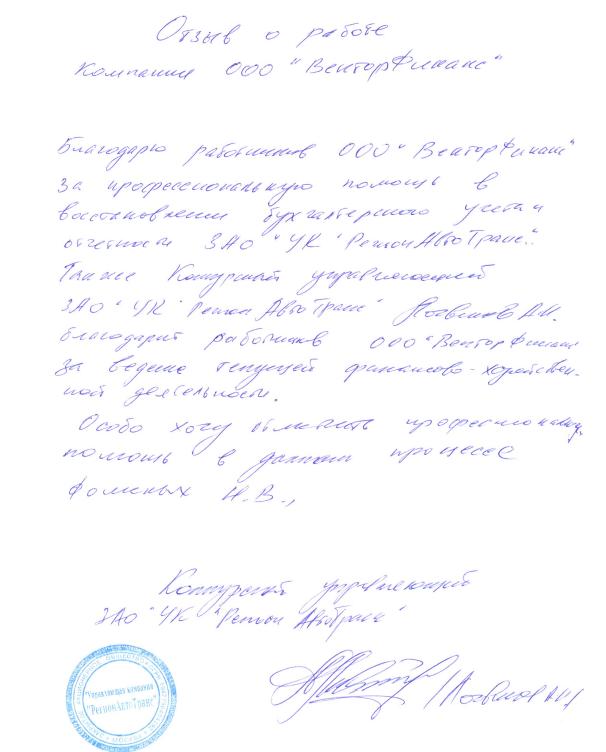 Отзыв о работе
компании ООО "ВекторФинанс"
Благодарю работников ООО "ВекторФинанс"
за профессиональную помощь в
восстановлении бухгалтерского учета и
отчетности ЗАО "УК "РегионАвтоТранс".
Также Конкурсный управляющий
ЗАО "УК "РегионАвтоТранс" А.Н.
благодарит работников ООО "ВекторФинанс
за ведение текущей финансово-хозяйствен-
ной деятельности.
Особо хочу отметить профессиональную
помощь в данном процессе
Фоминых Н.В.,
Конкурсный управляющий
ЗАО "УК "РегионАвтоТранс"
"Управляющая компания
"РегионАвтоТранс"
МОСКВА